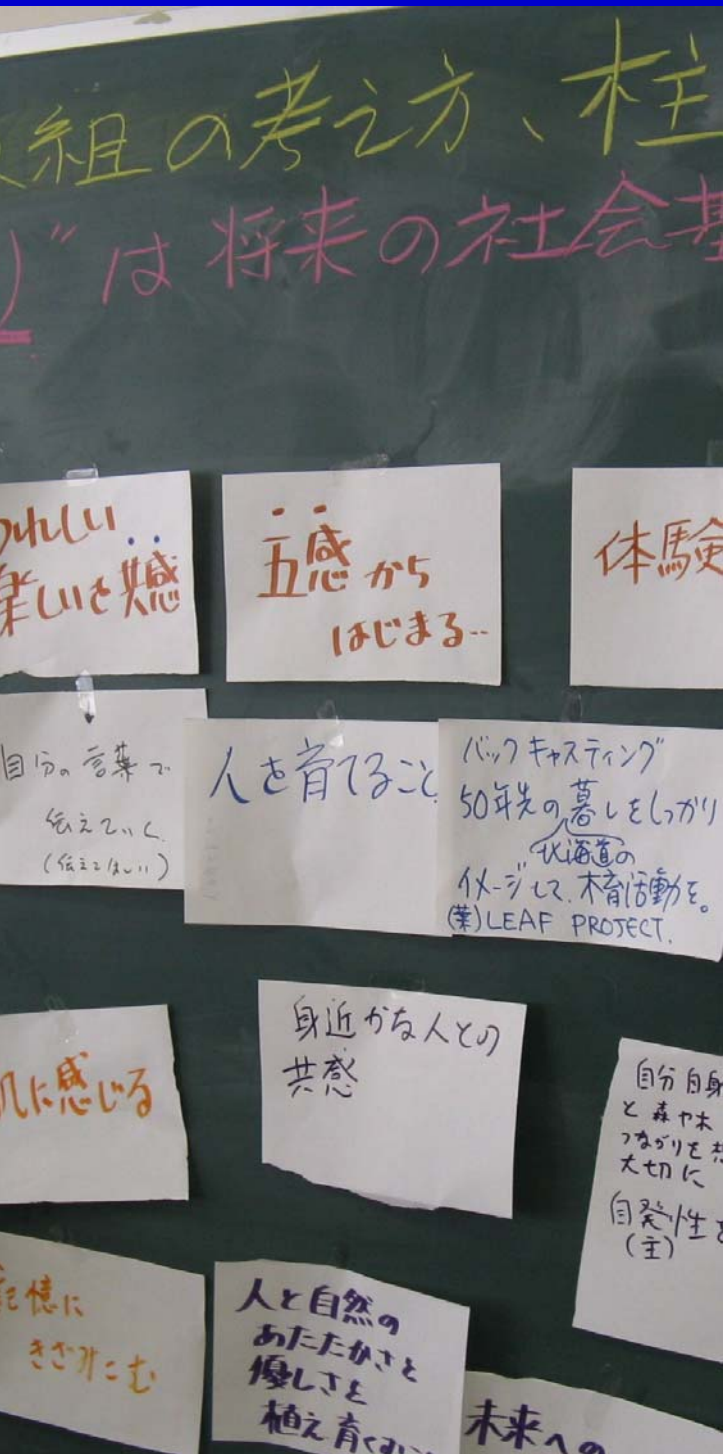 組の考え方、柱
”は将来の社会基
うれしい
楽しいを共感
五感から
はじまる‥
体験
自分の言葉で
伝えていく
(伝えてほしい)
人を育てること
バックキャスティング
50年先の暮しをしっかり
北海道の
イメージして、木育活動を。
(葉)LEAF PROJECT.
肌に感じる
身近かな人との
共感
自分自身
と森や木
つながりを想
大切に
自発性を
(主)
記憶に
きざみこむ
人と自然の
あたたかさと
優しさを
植え育
未来への